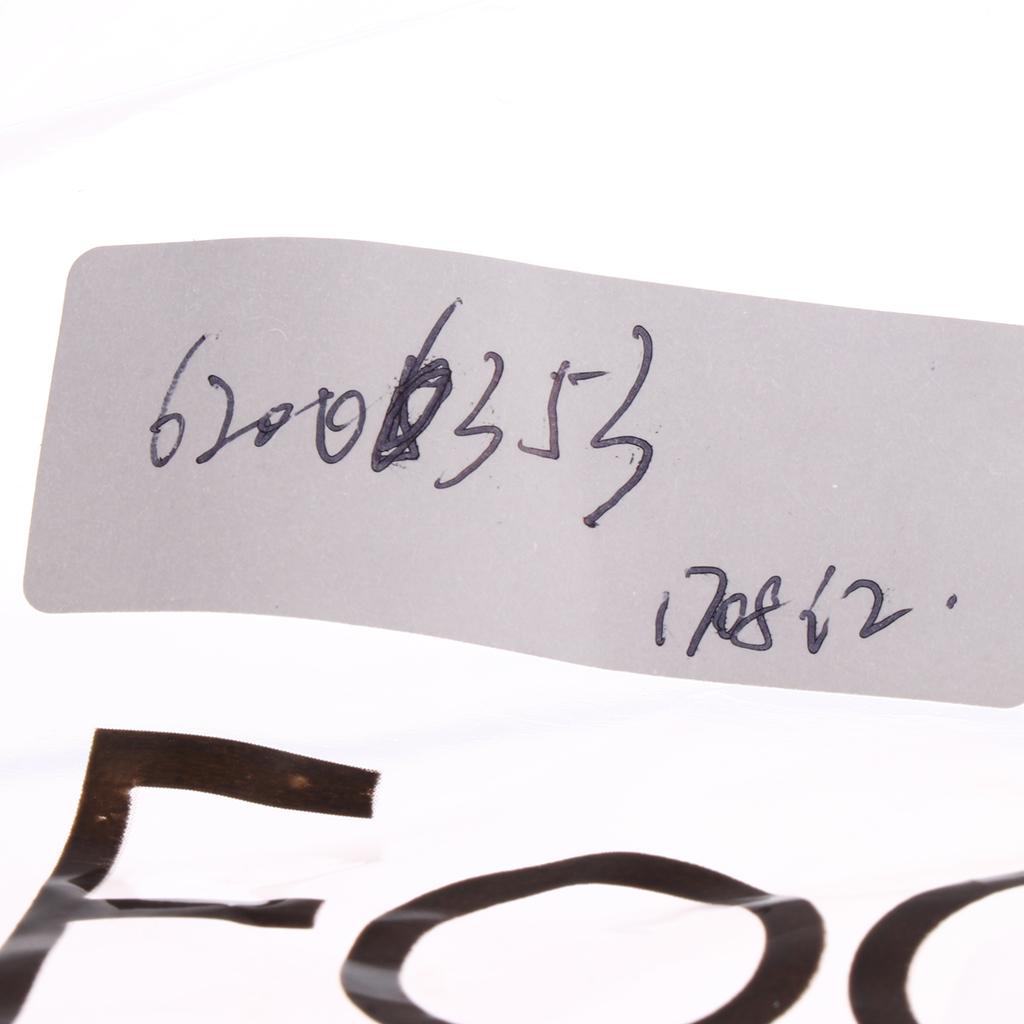 62006353
170812.
FOO